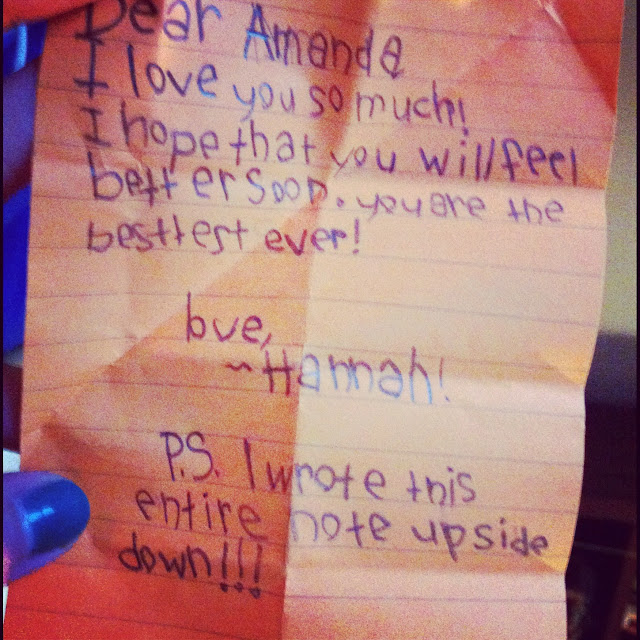 Dear Amanda
I love you so much!
I hope that you will feel
better soon. you are the
besttest ever!
love,
~Hannah!
P.S. I wrote this
entire note upside
down!!!